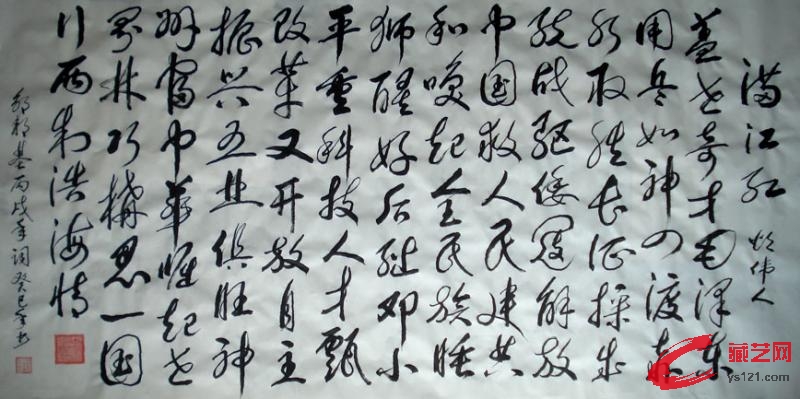 满江红 忆伟人
盖世奇才毛泽东
用兵如神四渡赤
水取胜长征成
统战驱倭寇解放
中国救人民建共
和唤起全民族睡
狮醒好后继邓小
平重科技人才甄
改革又开放自主
振兴五业俱旺神
州富中华崛起世
界林巧构思一国
行两制浩海情
基丙戌年词癸巳年书
藏艺网
ys121.com